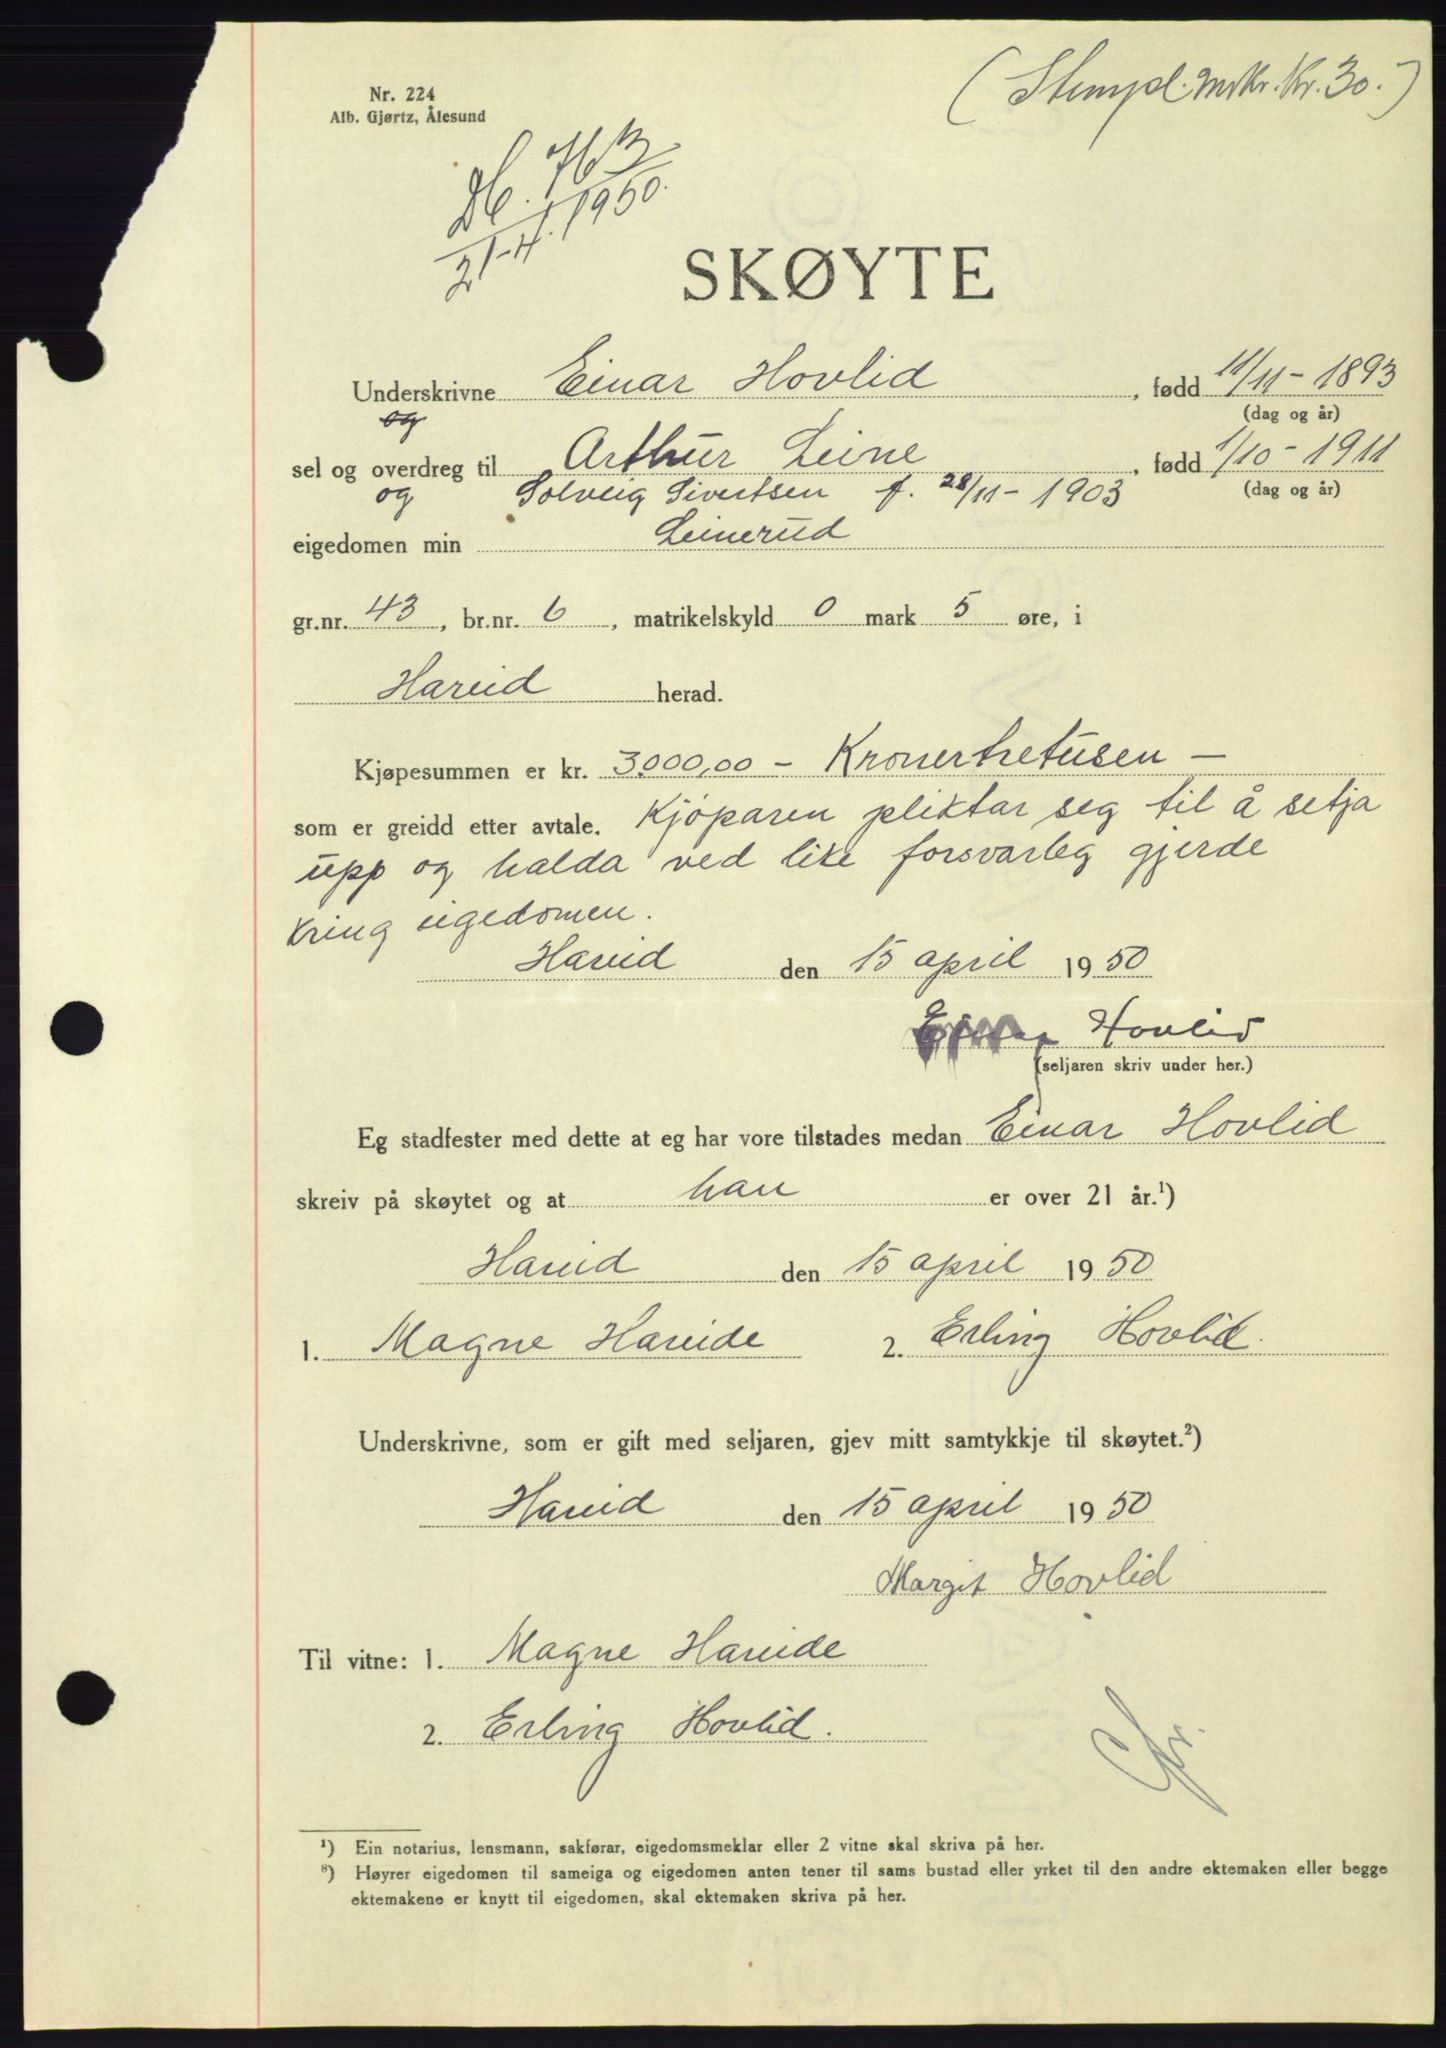 (Stempl. mrkr. Kr. 30.)
Nr. 224
Alb. Gjørtz, Ålesund
Db. 763
21-4. 1950.
SKØYTE
Underskrivne Einar Hovlid, fødd 11/11-1893
og (dag og år)
sel og overdreg til Arthur Leine, fødd 1/10-1911
og Solveig Sivertsen f. 28/11-1903 (dag og år)
eigedomen min Leinerud
gr.nr. 43, br.nr. 6, matrikelskyld 0 mark 5 øre, i
Hareid herad.
Kjøpesummen er kr. 3000,00 - Kronertretusen -
som er greidd etter avtale. Kjøparen pliktar seg til å setja
upp og halda ved like forsvarleg gjerde
kring eigedomen.
Hareid den 15 april 1950
Einar Hovlid
(seljaren skriv under her.)
Eg stadfester med dette at eg har vore tilstades medan Einar Hovlid
skreiv på skøytet og at han er over 21 år.¹)
Hareid den 15 april 1950
1. Magne Hareide 2. Erling Hovlid.
Underskrivne, som er gift med seljaren, gjev mitt samtykkje til skøytet.²)
Hareid den 15 april 1950
Margit Hovlid
Til vitne: 1. Magne Hareide
2. Erling Hovlid.
¹) Ein notarius, lensmann, sakførar, eigedomsmeklar eller 2 vitne skal skriva på her.
⁸) Høyrer eigedomen til sameiga og eigedomen anten tener til sams bustad eller yrket til den andre ektemaken eller begge
ektemakene er knytt til eigedomen, skal ektemaken skriva på her.